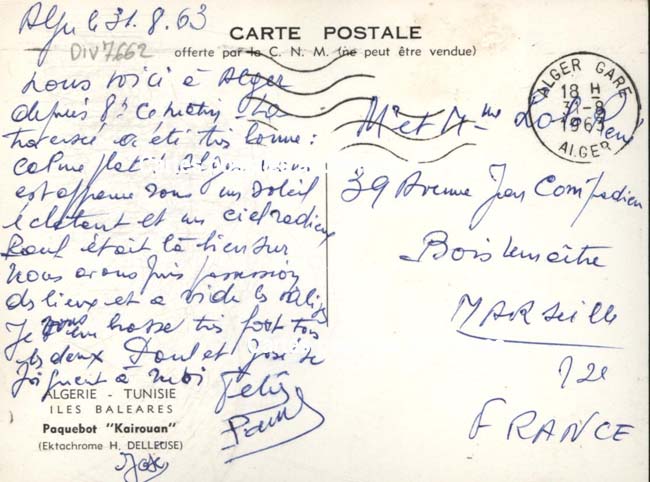 Alger le 31.8.63
DIV7662
CARTE POSTALE
offerte par la C. N. M. (ne peut être vendue)
Nous voici à Alger
depuis 8h ce matin - La
traversée a été très bonne :
calme plat. Alger nous
est apparue sous un soleil
éclatant et un ciel radieux
Paul était là bien sur
Nous avons pris possession
des lieux et a vidé les valises
Je vous embrasse très fort tous
les deux Paul et José se
joignent à moi
Paul
José
ALGERIE - TUNISIE
ILES BALEARES
Paquebot "Kairouan"
(Ektachrome H. DELLEUSE)
ALGER GARE
18 H
31-8
1963
ALGER
Mr et Mme
39 Avenue Jean
Bois Lemaître
MARSEILLE
12e
FRANCE